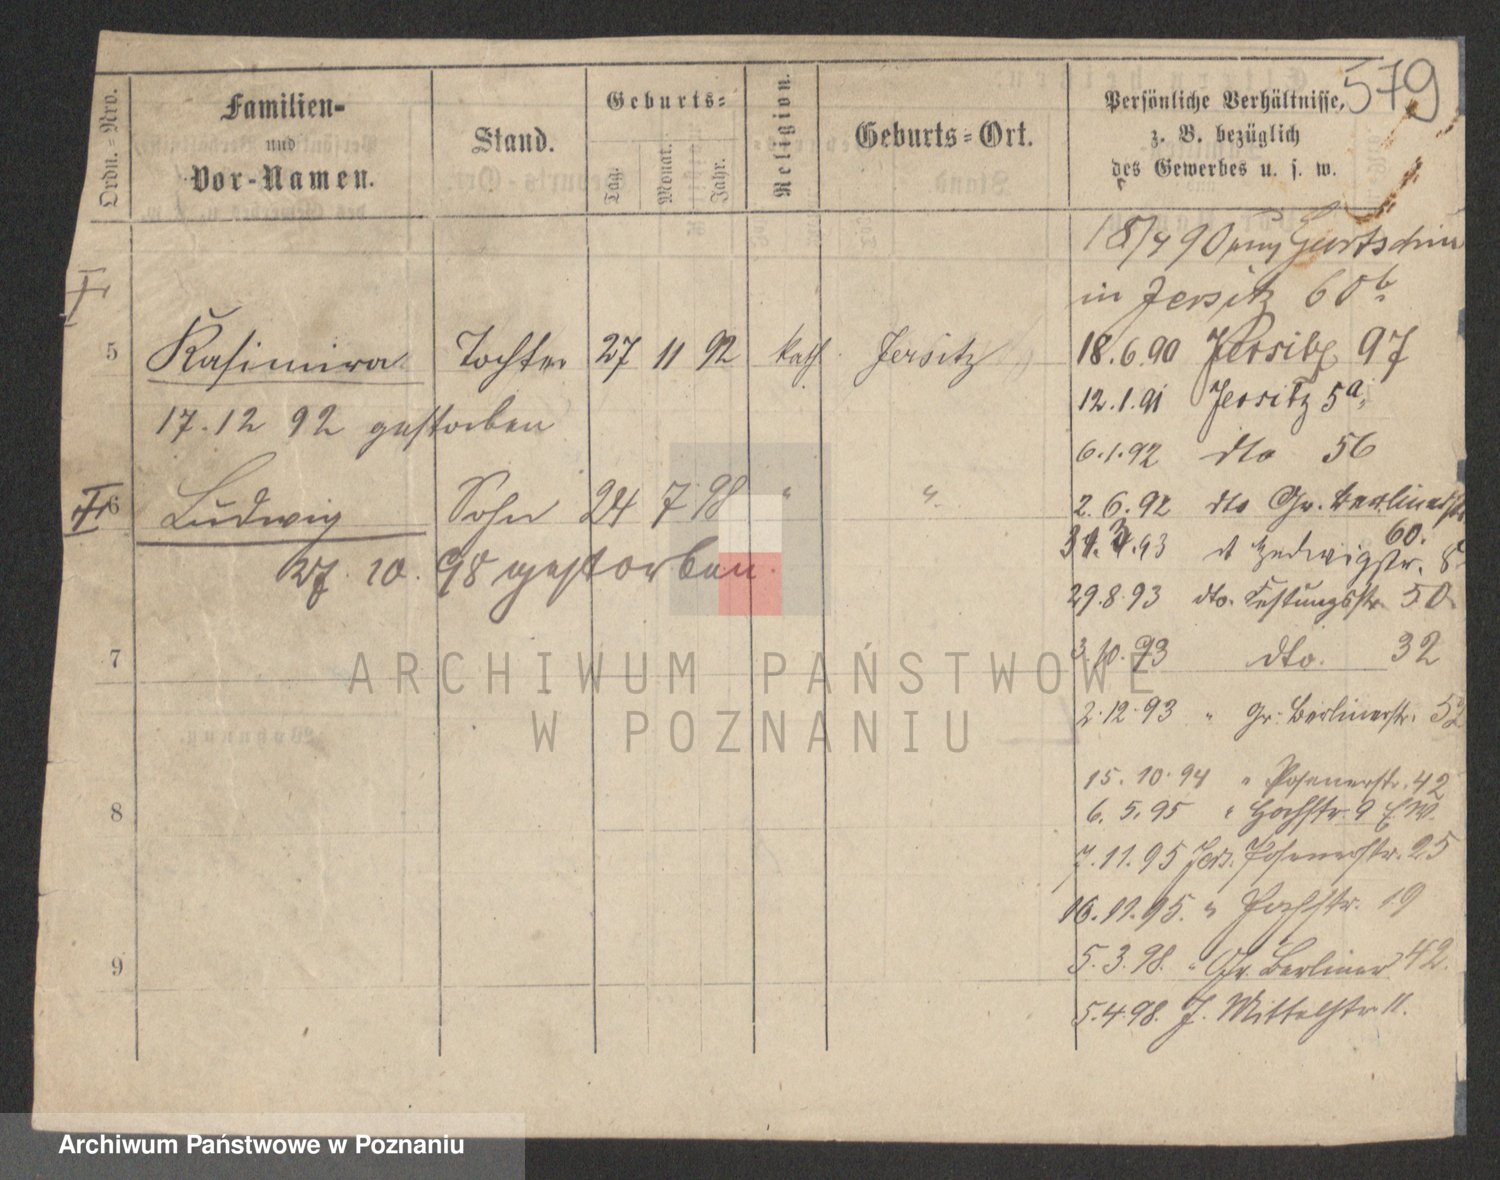 579
Ordn.-Nro.
Familien-
und
Vor-Namen.
Stand.
Geburts-
Tag.
Monat.
Jahr.
Religion.
Geburts-Ort.
Persönliche Verhältnisse,
z. B. bezüglich
des Gewerbes u. s. w.
18/4 90 Gurtschin
in Jersitz 60b
5 Kasimira Tochter 27 11 92 kath. Jersitz
18.6.90 Jersitz 97
12.1.91 Jersitz 5a
17.12 92 gestorben
6.1.92 dto 56
6 Ludwig Sohn 24 7 98 " "
2.6.92 dto Gr. Berlinerstr
60.
93 Hedwigstr. 8
27. 10. 98 gestorben.
29.8.93 dto. Festungsstr 50
7
3.10.93 dto. 32
2.12.93 " Gr. Berlinerstr. 52
15.10.94 " Posenerstr. 42
8
6.5.95 " Hochstr. 9
7.11.95 Jers. Posenerstr. 25
16.11.95. " 19
9
5.3.98. " Gr. Berliner 42.
5.4.98. J. Mittelstr 11.
ARCHIWUM PAŃSTWOWE
W POZNANIU
Archiwum Państwowe w Poznaniu